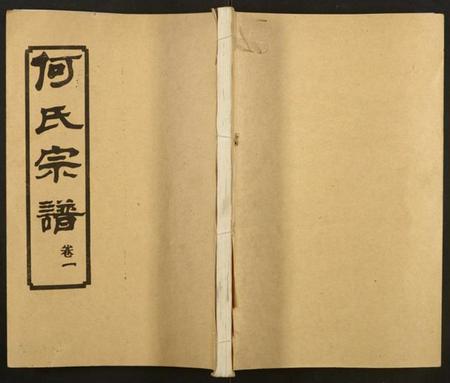 何氏宗譜
卷一